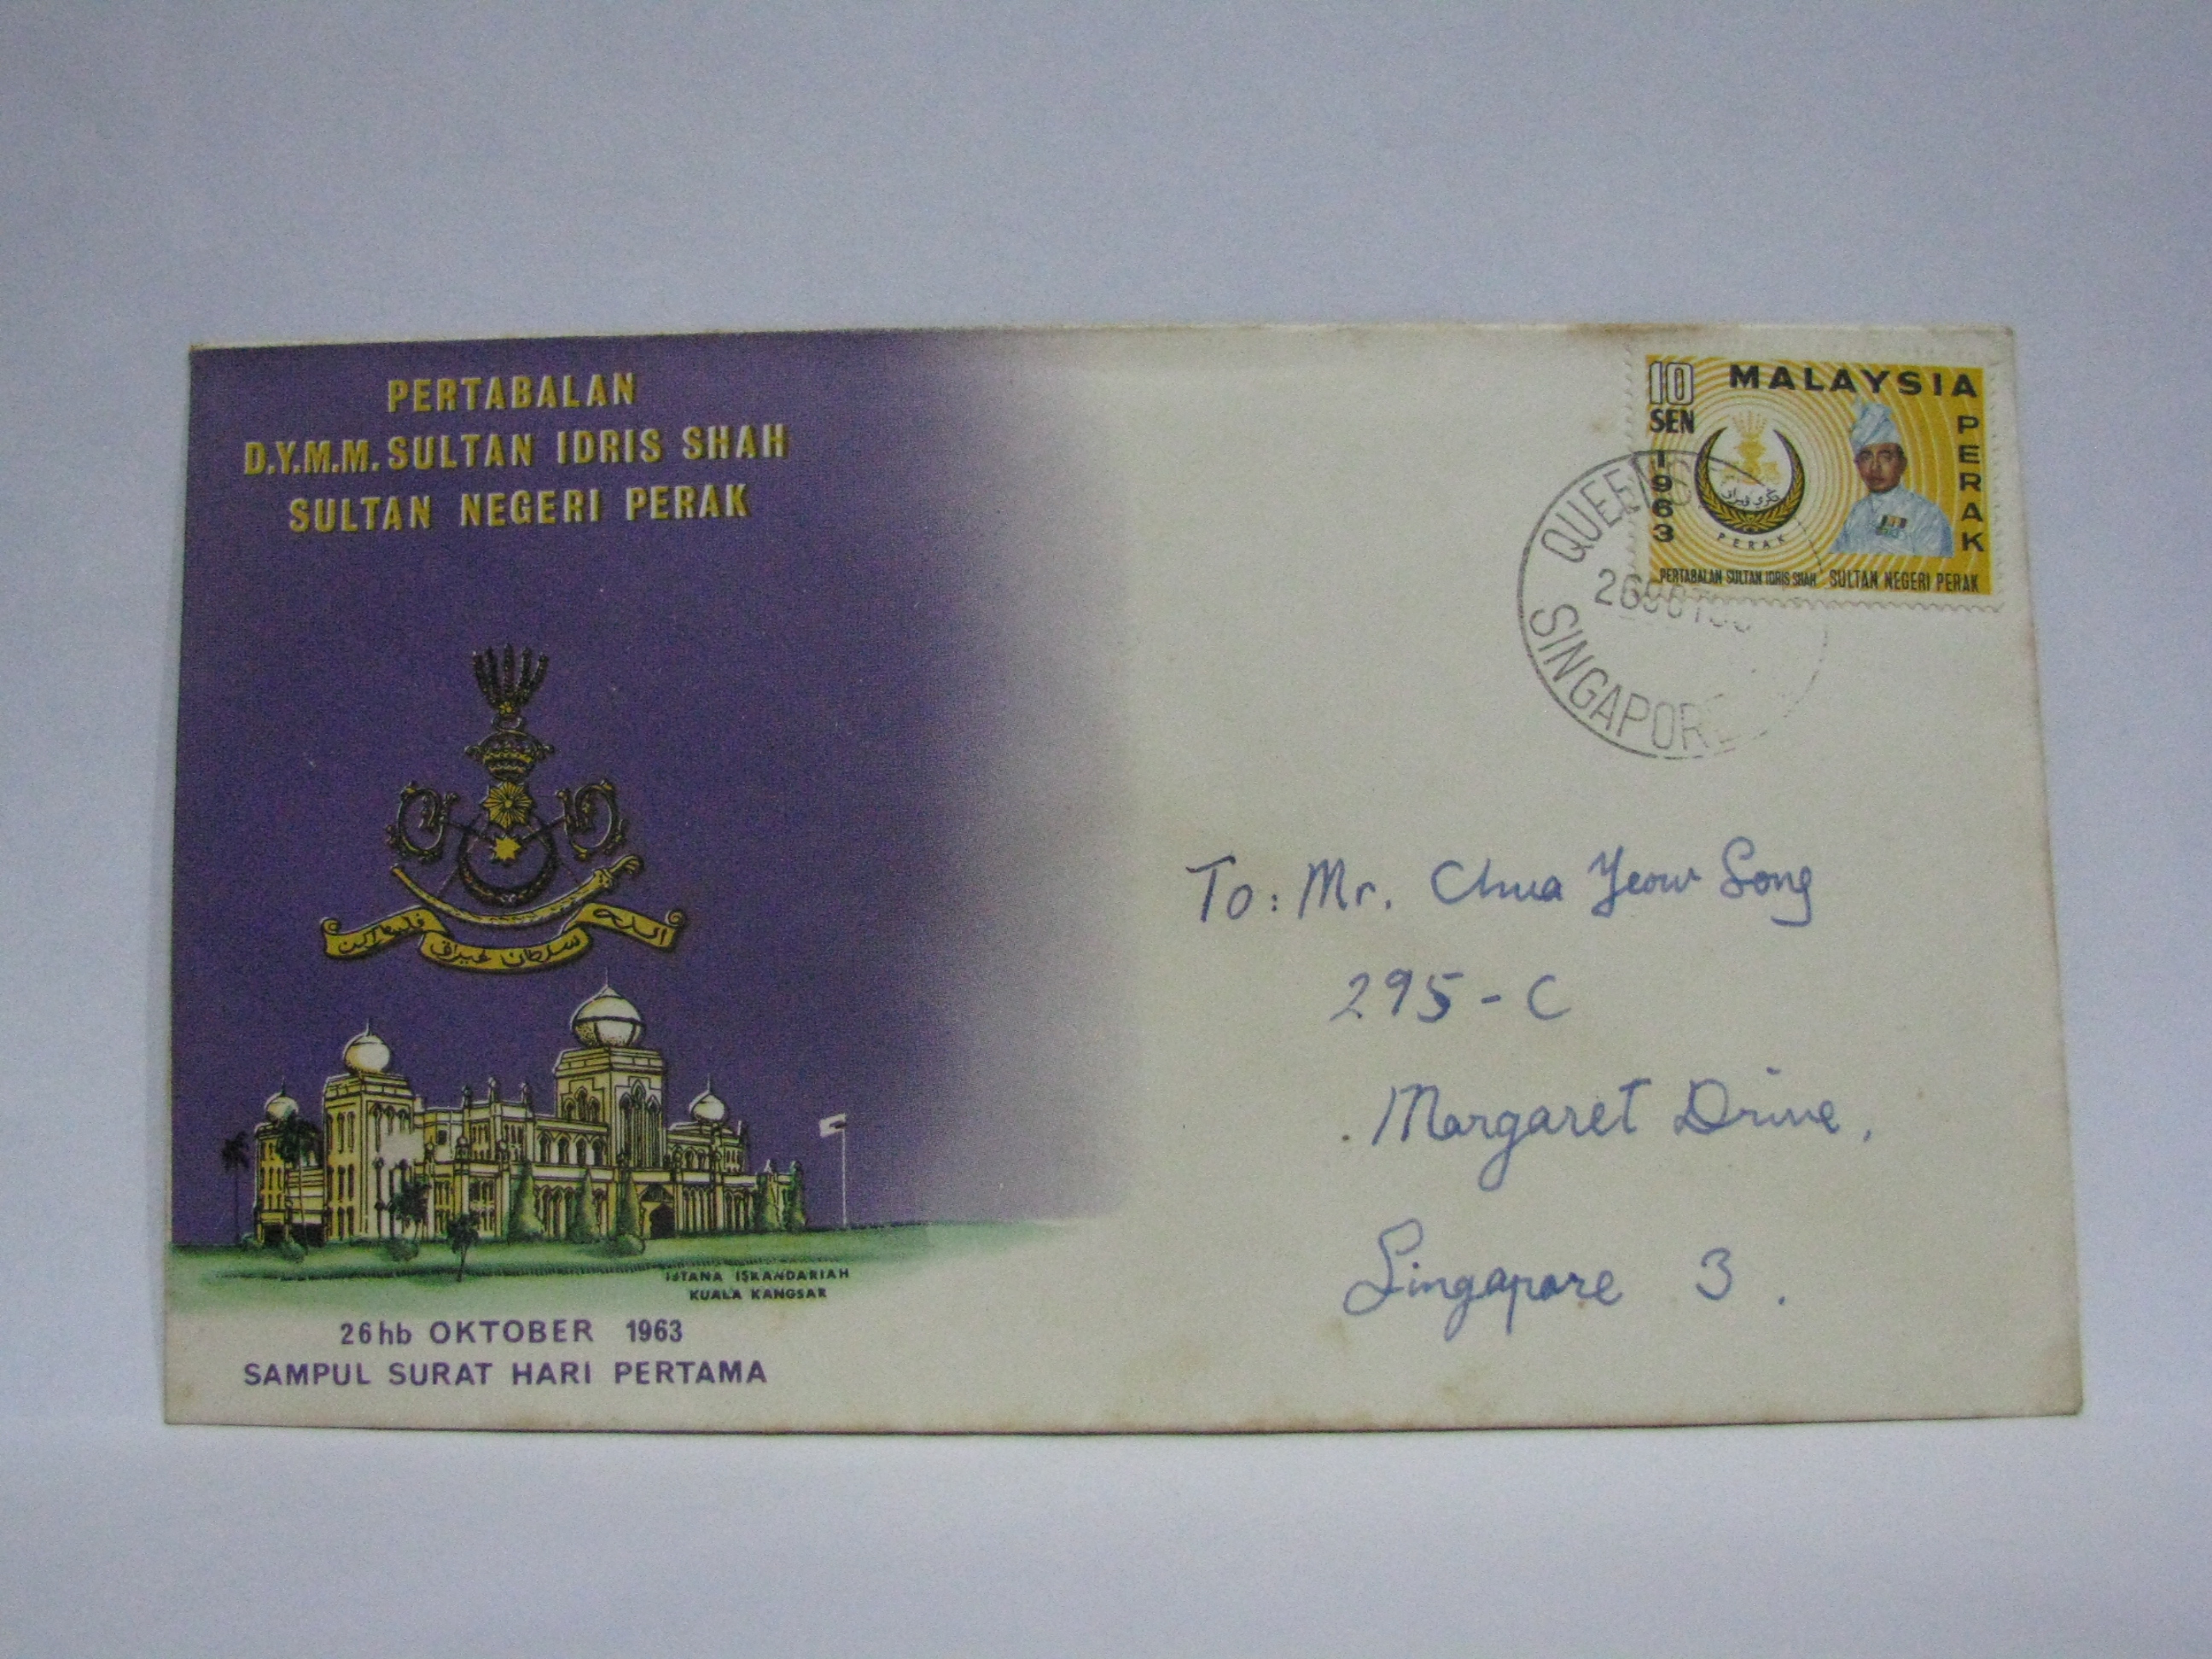 PERTABALAN
D.Y.M.M. SULTAN IDRIS SHAH
SULTAN NEGERI PERAK
سلطان
ISTANA ISKANDARIAH
KUALA KANGSAR
26hb OKTOBER 1963
SAMPUL SURAT HARI PERTAMA
10 MALAYSIA
SEN
1963
PERAK
PERAK
PERTABALAN SULTAN IDRIS SHAH SULTAN NEGERI PERAK
SINGAPORE
To: Mr. Chua Yeow Song
295-C
Margaret Drive,
Singapore 3.